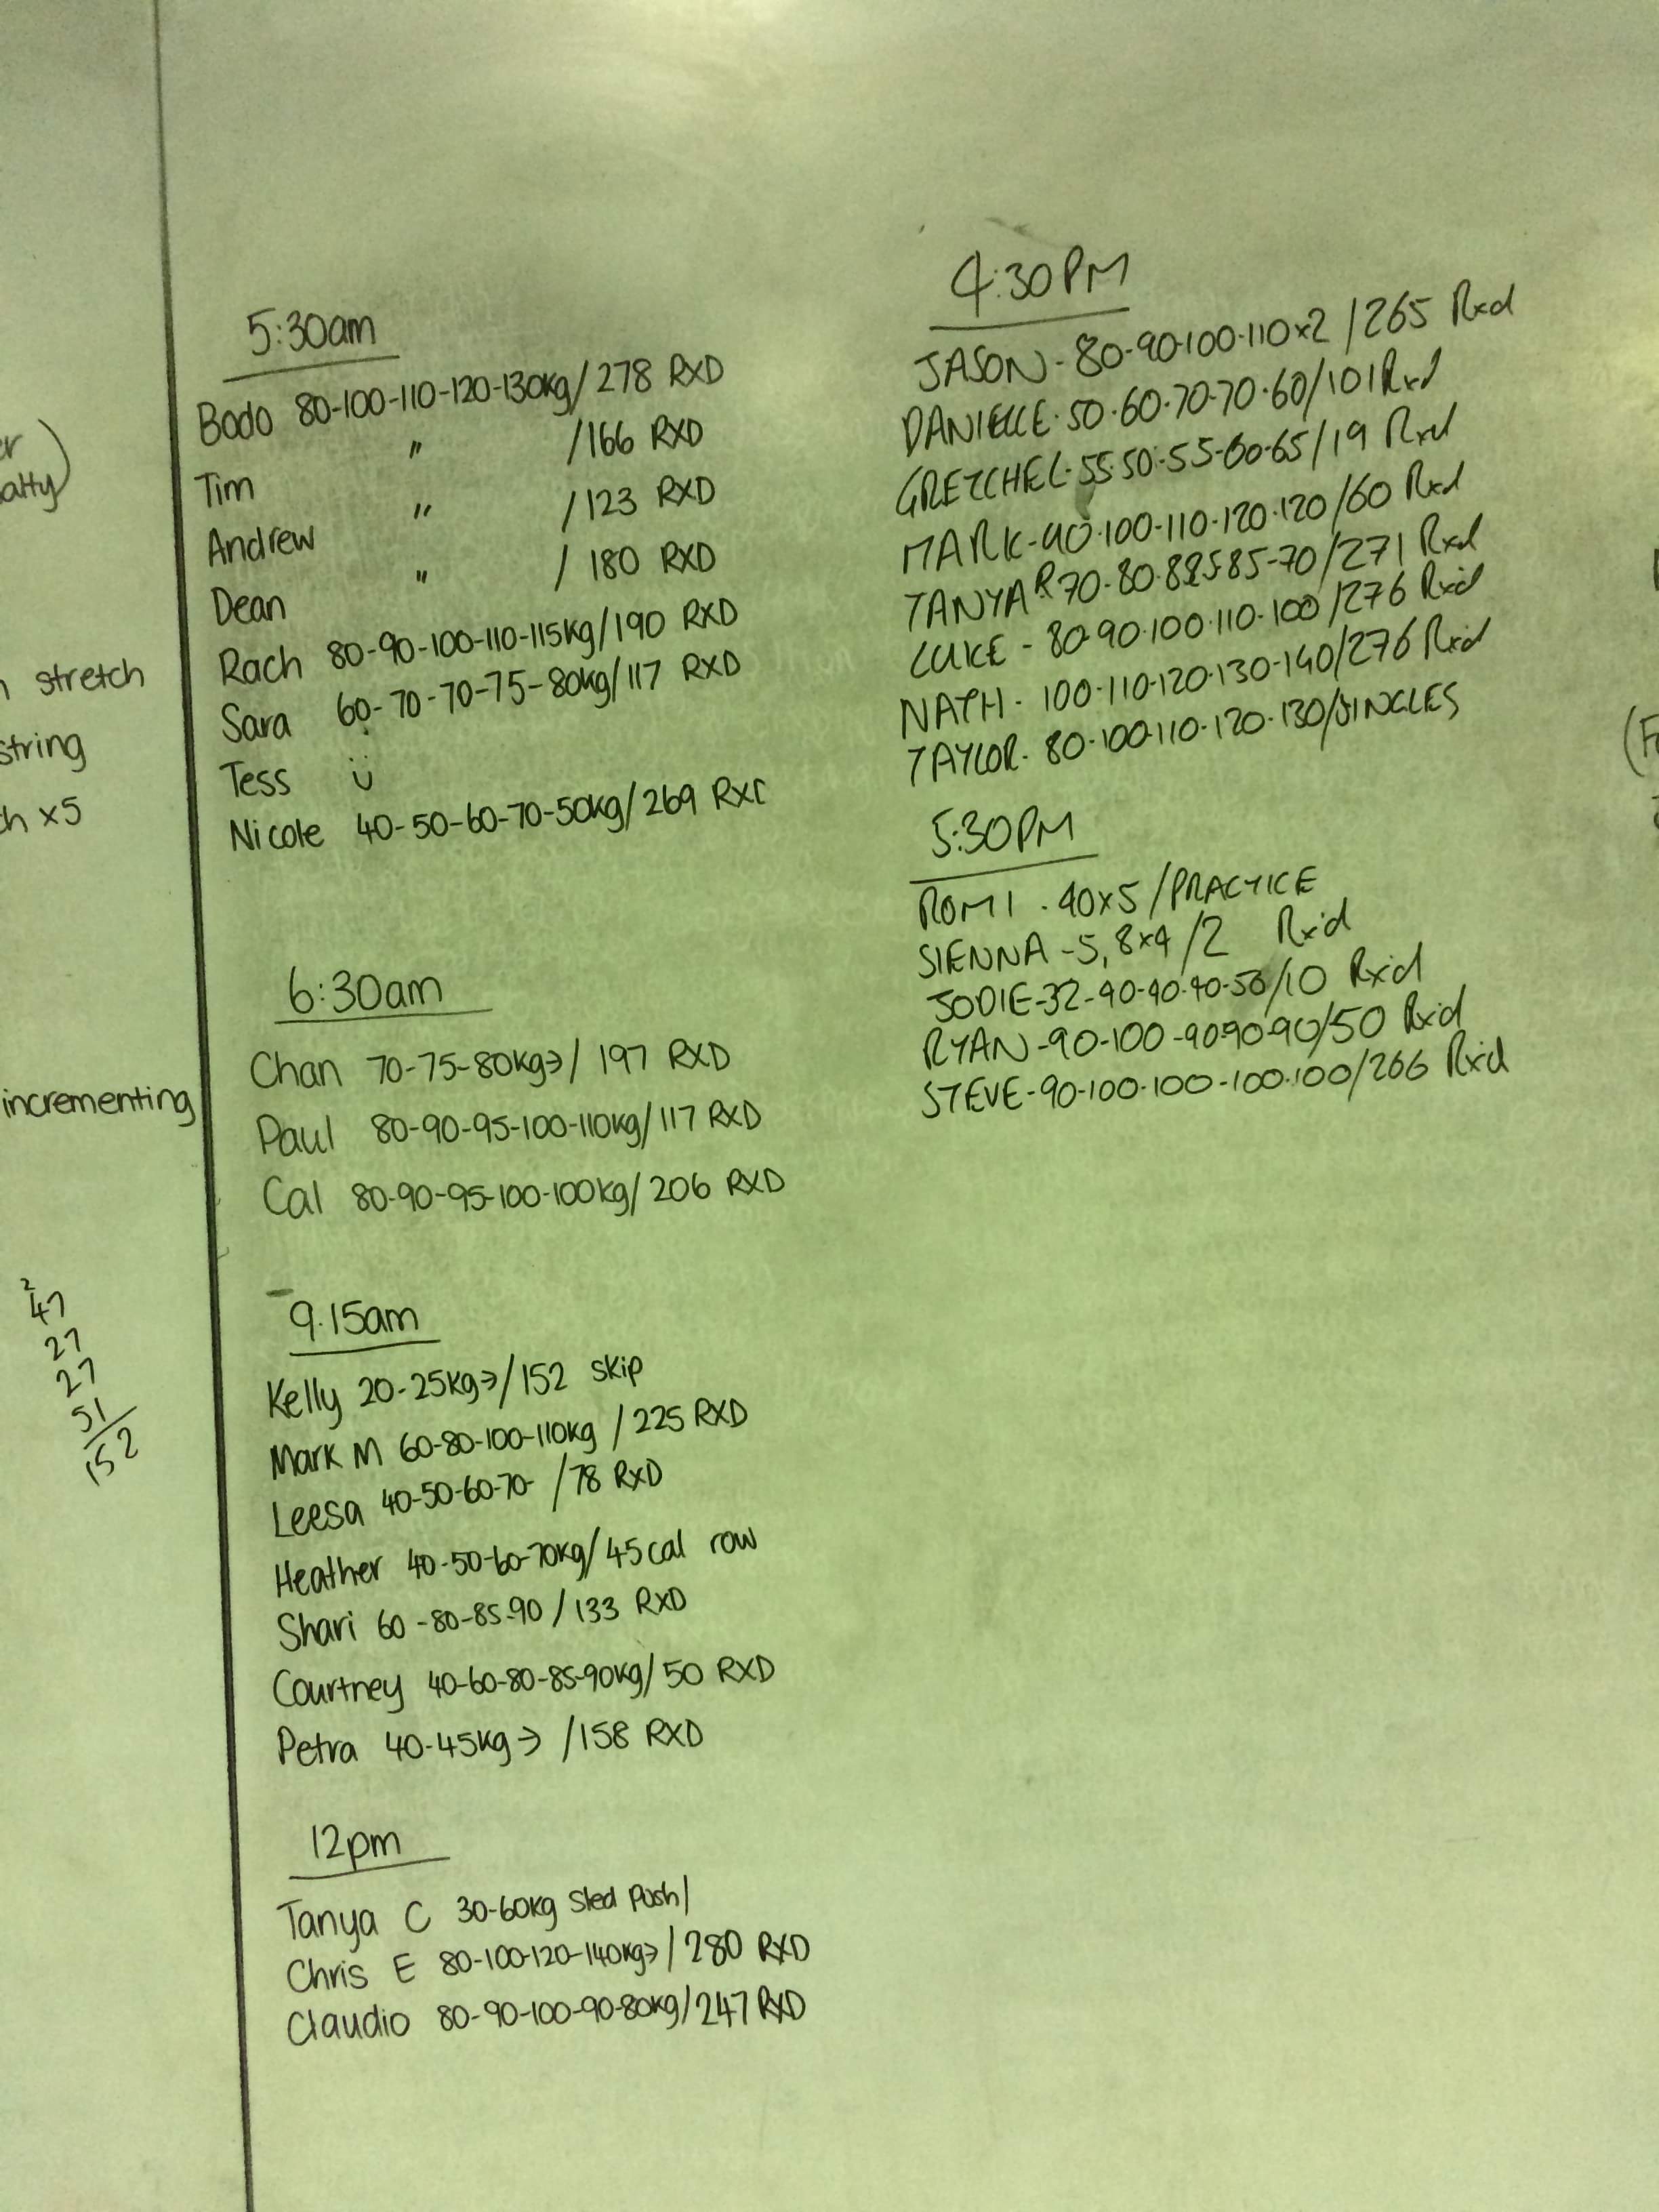 stretch
string
x5
incrementing
2
47
27
27
51
152
5:30am
Bodo 80-100-110-120-130kg/278 RXD
Tim " /166 RXD
Andrew " /123 RXD
Dean " / 180 RXD
Rach 80-90-100-110-115kg/190 RXD
Sara 60-70-70-75-80kg/117 RXD
Tess Ü
Nicole 40-50-60-70-50kg/269 RXD
6:30am
Chan 70-75-80kg→/ 197 RXD
Paul 80-90-95-100-110kg/117 RXD
Cal 80-90-95-100-100kg/206 RXD
9:15am
Kelly 20-25kg→/152 skip
Mark M 60-80-100-110kg /225 RXD
Leesa 40-50-60-70- /78 RXD
Heather 40-50-60-70kg/45cal row
Shari 60-80-85-90/133 RXD
Courtney 40-60-80-85-90kg/50 RXD
Petra 40-45kg→ /158 RXD
12pm
Tanya C 30-60kg Sled Push/
Chris E 80-100-120-140kg→/280 RXD
Claudio 80-90-100-90-80kg/247 RXD
4:30PM
JASON-80-90-100-110x2/265 Rxd
DANIELLE-50-60-70-70-60/101 Rxd
GRETCHEL-55-50-55-60-65/19 Rxd
MARK-90-100-110-120-120/60 Rxd
TANYA R 70-80-85-85-70/271 Rxd
LUKE-80-90-100-110-100/276 Rx'd
NATH-100-110-120-130-140/276 Rx'd
TAYLOR-80-100-110-120-130/SINGLES
5:30PM
ROMI-40x5/PRACTICE
SIENNA-5,8x4/2 Rx'd
JODIE-32-40-40-40-50/10 Rx'd
RYAN-90-100-90-90-90/50 Rx'd
STEVE-90-100-100-100-100/266 Rx'd